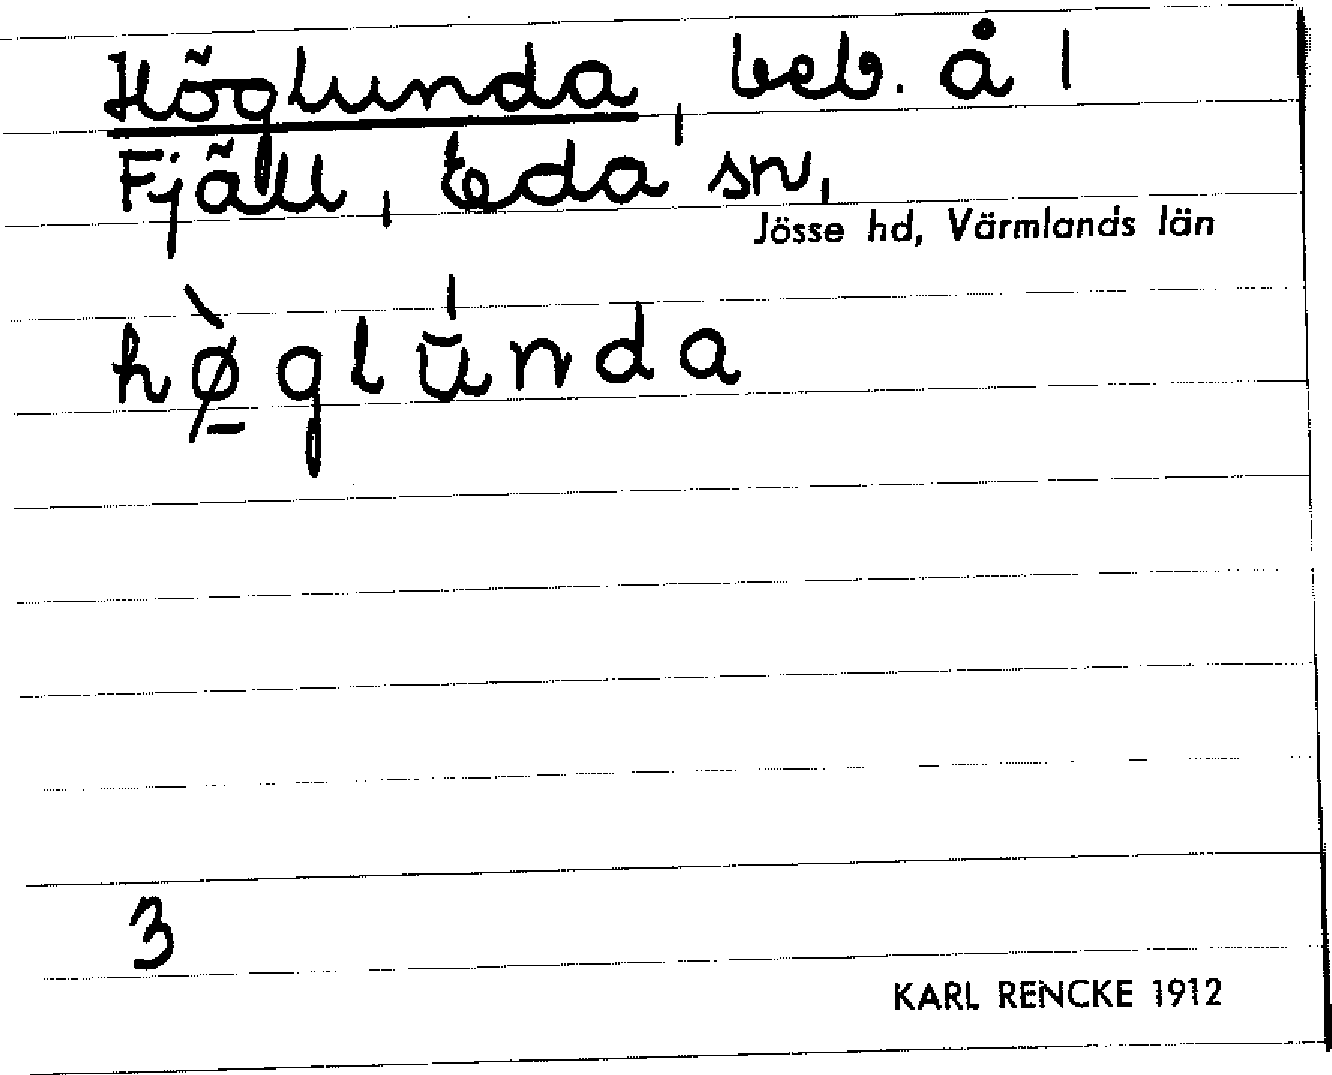 Höglunda, beb. å 1
Fjäll, Eda sn,
Jösse hd, Värmlands län
hø̱̀glŭ́nda
3
KARL RENCKE 1912